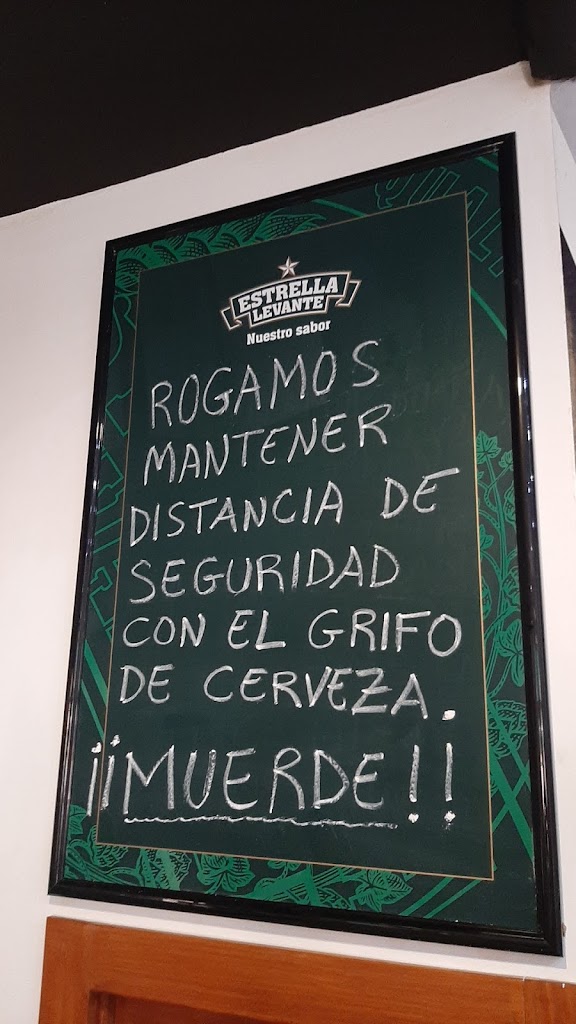 ESTRELLA
LEVANTE
Nuestro sabor
ROGAMOS
MANTENER
DISTANCIA DE
SEGURIDAD
CON EL GRIFO
DE CERVEZA.
¡¡MUERDE!!